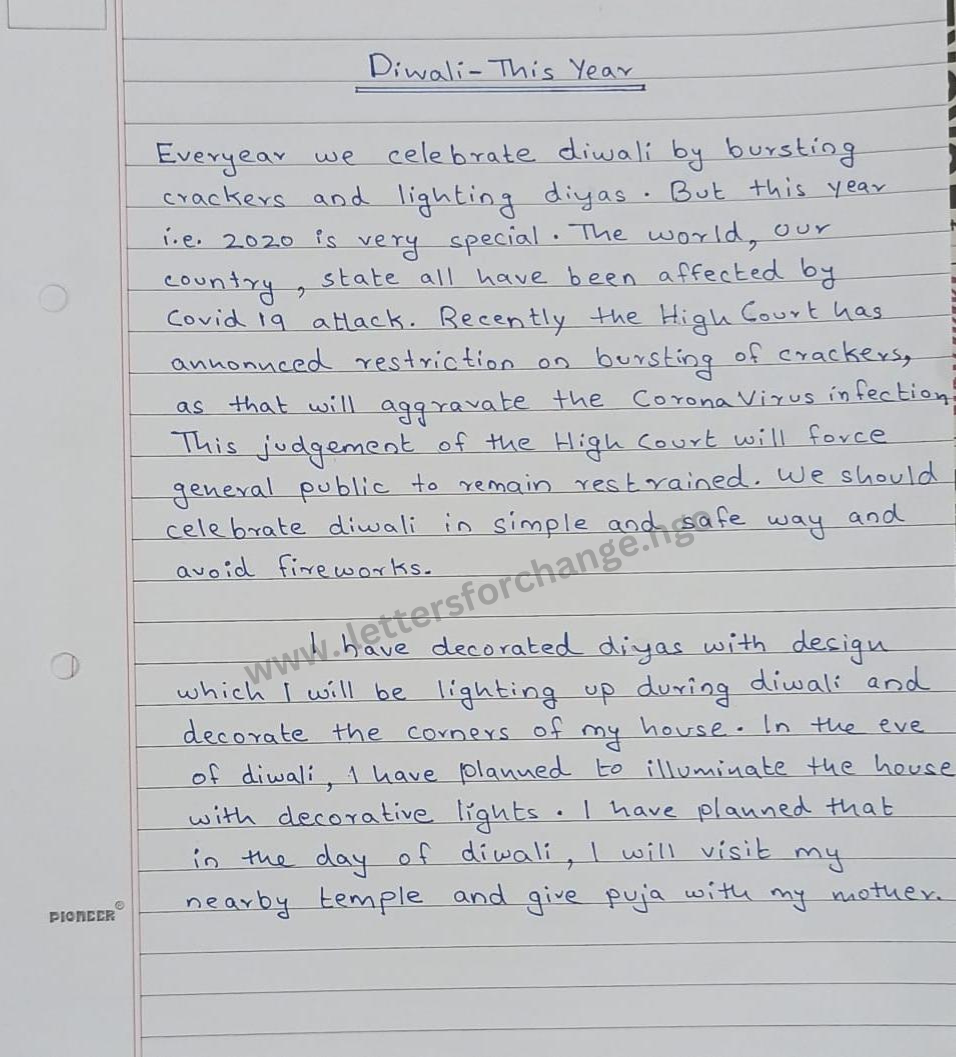 Diwali - This Year
Everyear we celebrate diwali by bursting
crackers and lighting diyas. But this year
i.e. 2020 is very special. The world, our
country, state all have been affected by
Covid 19 attack. Recently the High Court has
annonuced restriction on bursting of crackers,
as that will aggravate the Corona Virus infection
This judgement of the High Court will force
general public to remain restrained. We should
celebrate diwali in simple and safe way and
avoid fireworks.
www.lettersforchange.ngo
I have decorated diyas with design
which I will be lighting up during diwali and
decorate the corners of my house. In the eve
of diwali, I have planned to illuminate the house
with decorative lights. I have planned that
in the day of diwali, I will visit my
nearby temple and give puja with my mother.
PIONEER®